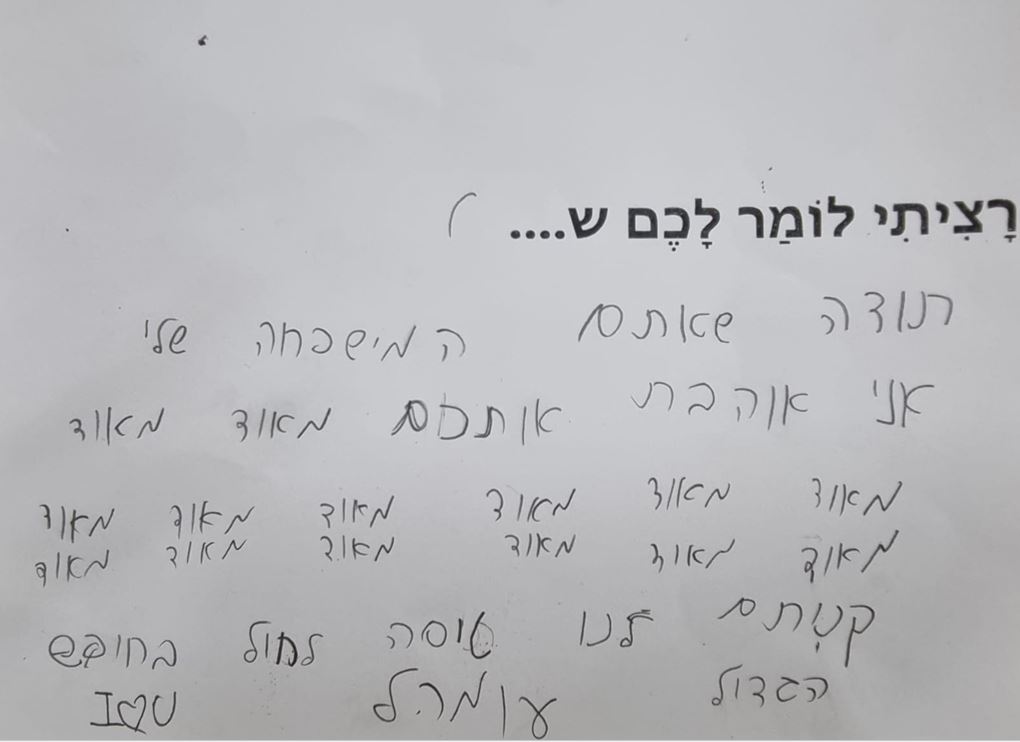 רָצִיתִי לוֹמַר לָכֶם ש....
תודה שאתם המישפחה שלי
אני אוהבת אותכם מאוד מאוד
מאוד מאוד מאוד מאוד מאוד מאוד
מאוד מאוד מאוד מאוד מאוד מאוד
קניתם לנו טיסה לחול בחופש
הגדול I♡U